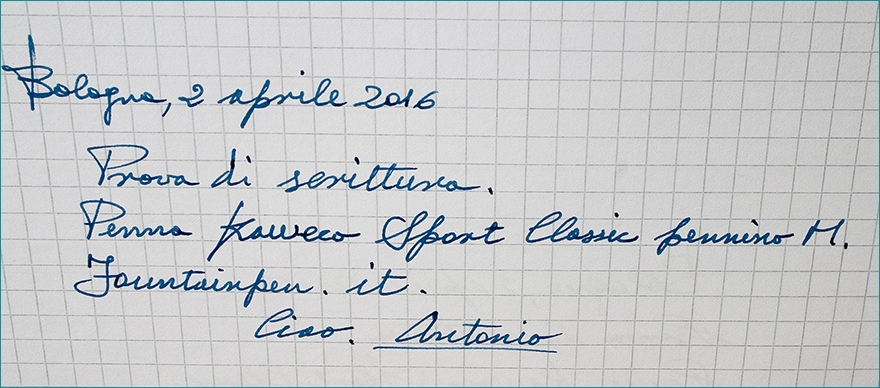 Bologna, 2 aprile 2016
Prova di scrittura.
Penna Kaweco Sport Classic pennino M.
Fountainpen. it.
Ciao. Antonio